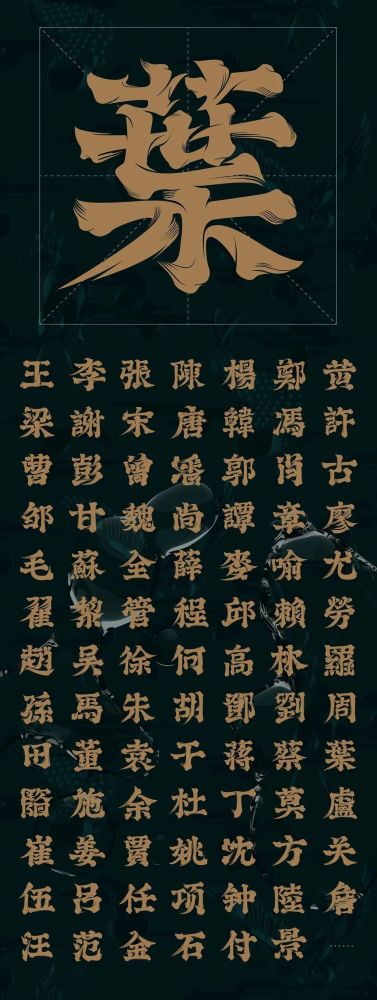 葉
王李張陳楊鄭黃
梁謝宋唐韓馮許
曹彭曾潘郭肖古
邹甘魏尚譚章廖
毛蘇全薛麥喻尤
翟黎管程邱賴勞
趙吴徐何高林羅
孫馬朱胡鄧劉周
田董袁于蒋蔡葉
施余杜丁莫盧
崔姜賈姚沈方关
伍吕任项钟陸詹
汪范金石付景……